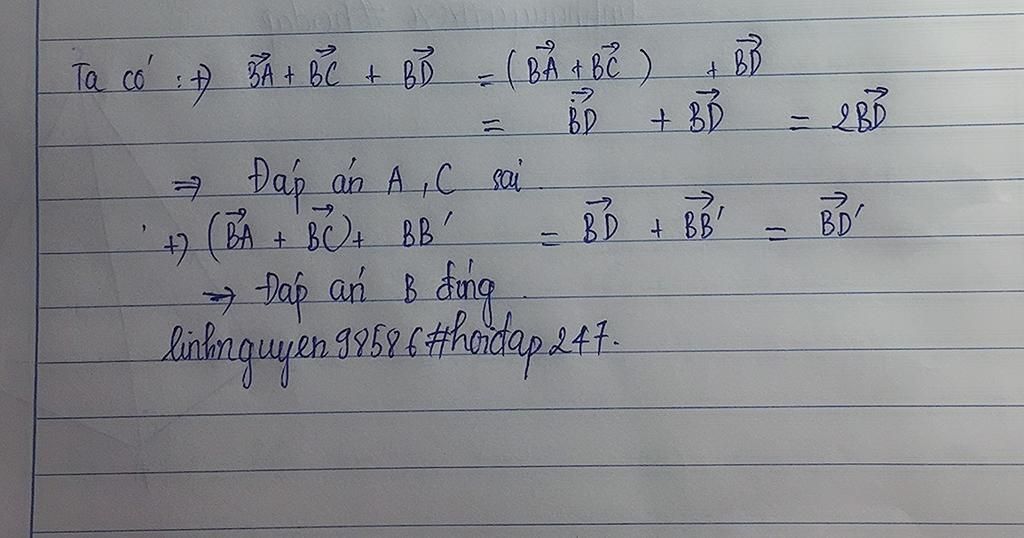 Ta có : +) B⃗A + B⃗C + B⃗D = ( B⃗A + B⃗C ) + B⃗D
= B⃗D + B⃗D = 2B⃗D
⇒ Đáp án A , C sai
+) ( B⃗A + B⃗C ) + BB' = B⃗D + B⃗B' = B⃗D'
→ Đáp án B đúng
linhnguyen98586#hoidap247.